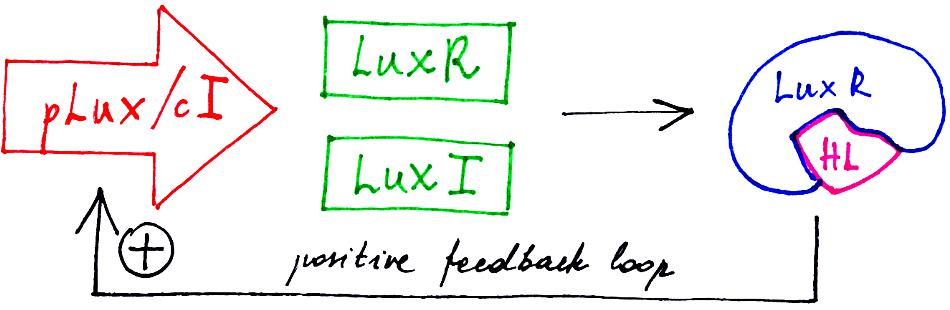 pLux/cI
LuxR
LuxI
LuxR
HL
+
positive feedback loop